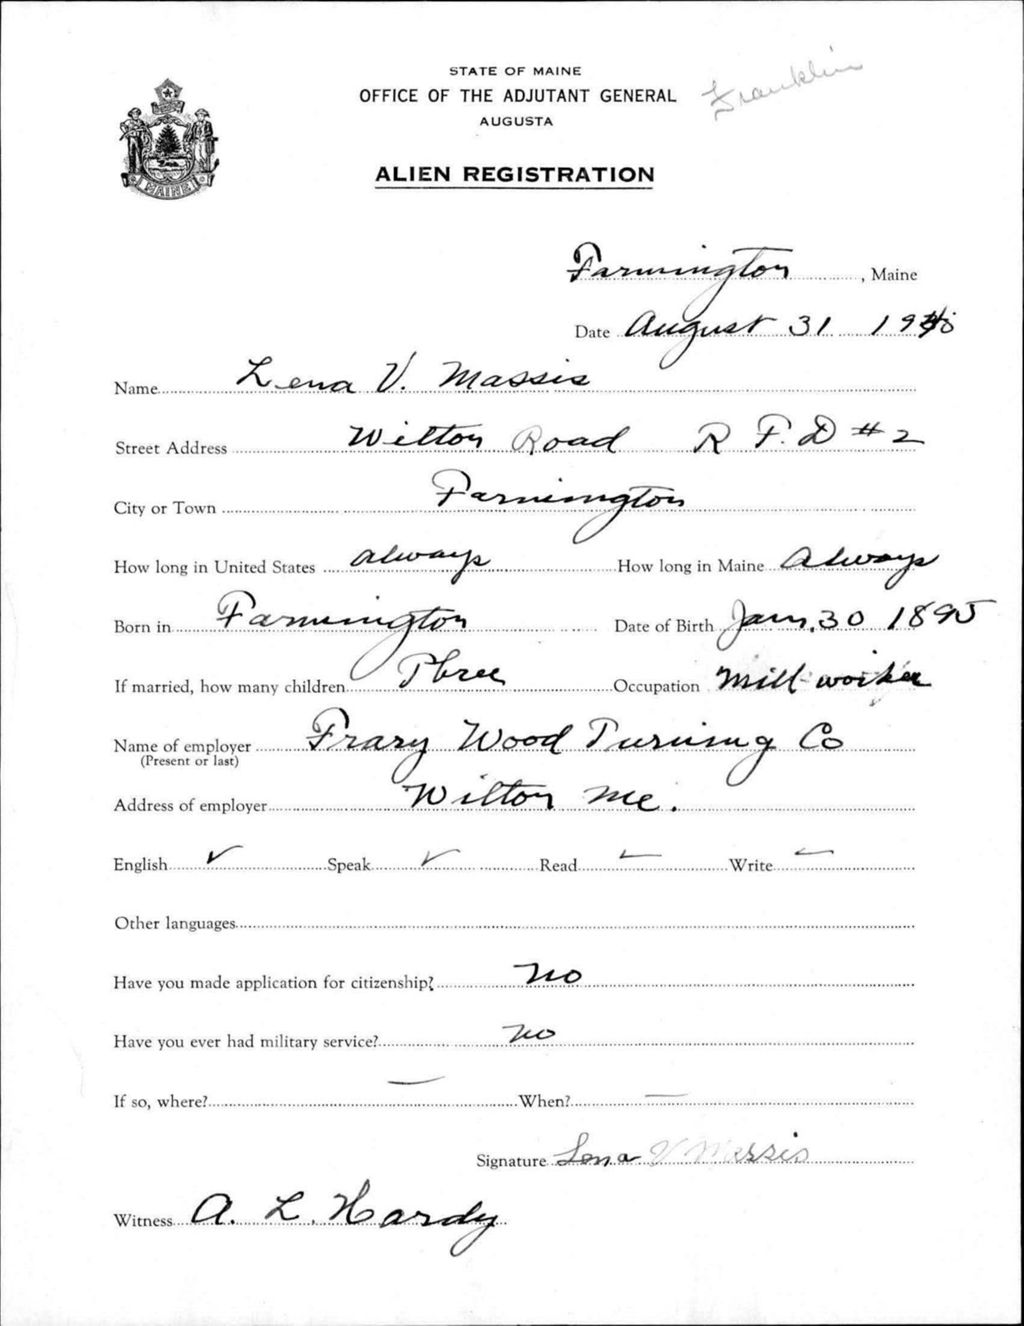 STATE OF MAINE
OFFICE OF THE ADJUTANT GENERAL
AUGUSTA
Franklin
MAINE
ALIEN REGISTRATION
Farmington, Maine
Date August 31 1940
Name Lena V. Massis
Street Address Wilton Road R.F.D #2
City or Town Farmington
How long in United States always How long in Maine Always
Born in Farmington Date of Birth Jan. 30 1895
If married, how many children Three Occupation Mill worker
Name of employer Frary Wood Turning Co
(Present or last)
Address of employer Wilton Me.
English ✓ Speak ✓ Read ✓ Write ✓
Other languages
Have you made application for citizenship? No
Have you ever had military service? No
If so, where? — When? —
Signature Lena V Massis
Witness A. L. Hardy